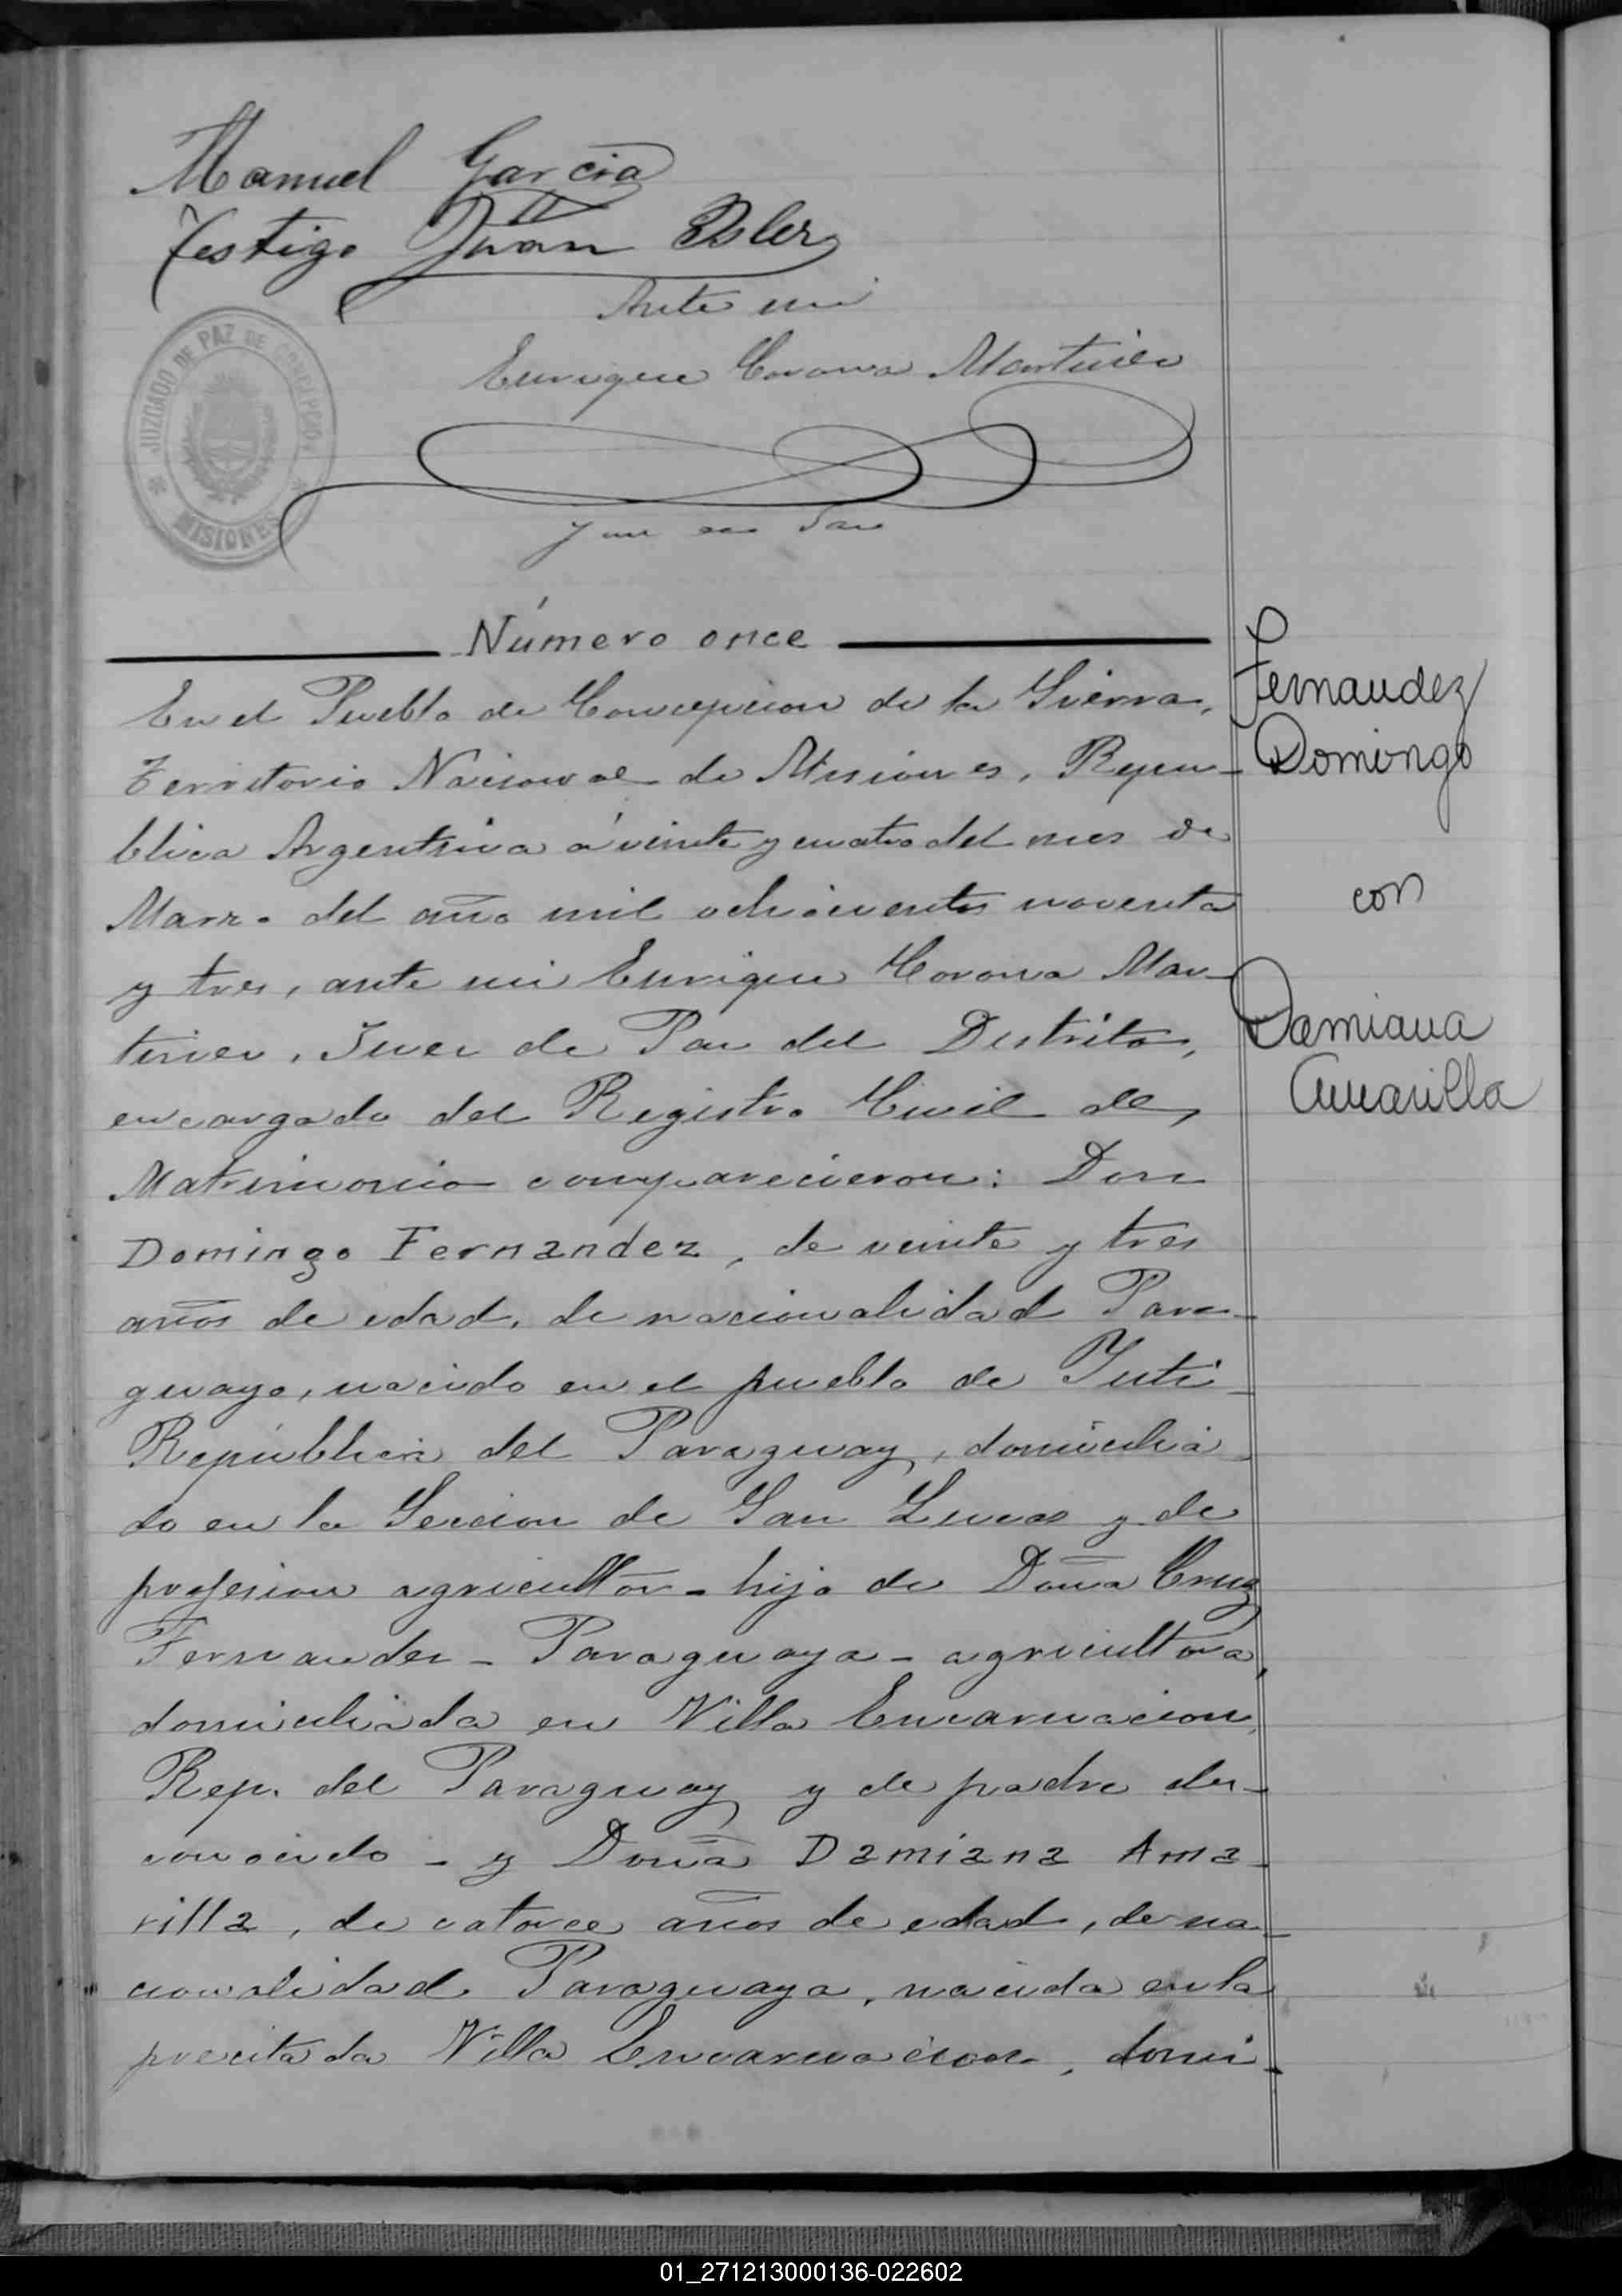 Manuel Garcia
Testigo Juan Isler
Ante mi
Enrique Corona Martinez
Juez de Paz
JUZGADO DE PAZ DE CONCEPCION
* MISIONES *
Número once
En el Pueblo de Concepcion de la Sierra,
Territorio Nacional de Misiones, Repu-
blica Argentina á veinte y cuatro del mes de
Marzo del año mil ochocientos noventa
y tres, ante mi Enrique Corona Mar-
tinez, Juez de Paz del Distrito,
encargado del Registro Civil de
Matrimonio comparecieron: Don
Domingo Fernandez, de veinte y tres
años de edad, de nacionalidad Para-
guayo, nacido en el pueblo de Yuti
República del Paraguay, domicilia-
do en la Seccion de San Lucas y de
profesion agricultor - hijo de Doña Cruz
Fernandez - Paraguaya - agricultora,
domiciliada en Villa Encarnacion,
Rep. del Paraguay y de padre des-
conocido - y Doña Damiana Ama-
rilla, de catorce años de edad, de na-
cionalidad Paraguaya, nacida en la
precitada Villa Encarnacion, domi-
Fernandez
Domingo
con
Damiana
Amarilla
01_271213000136-022602